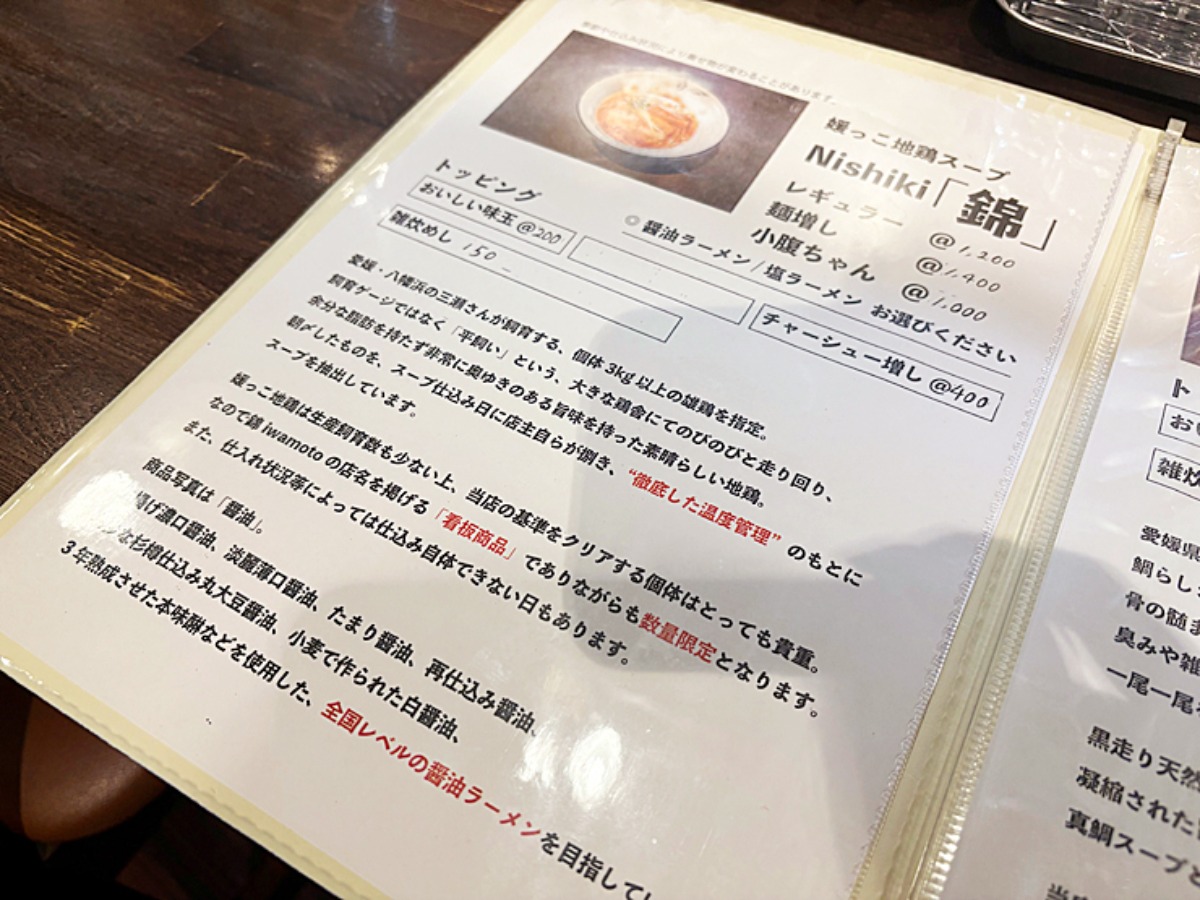 季節や仕込み状況により乗せ物が変わることがあります。
媛っこ地鶏スープ
Nishiki「錦」
レギュラー @1,200
麺増し @1,400
小腹ちゃん @1,000
◎醤油ラーメン/塩ラーメン お選びください
トッピング
おいしい味玉 @200
チャーシュー増し @400
雑炊めし 150
愛媛・八幡浜の三瀬さんが飼育する、個体3kg以上の雄鶏を指定。
飼育ゲージではなく「平飼い」という、大きな鶏舎にてのびのびと走り回り、
余分な脂肪を持たず非常に奥ゆきのある旨味を持った素晴らしい地鶏。
朝〆したものを、スープ仕込み日に店主自らが捌き、“徹底した温度管理”のもとに
スープを抽出しています。
媛っこ地鶏は生産飼育数も少ない上、当店の基準をクリアする個体はとっても貴重。
なので錦iwamotoの店名を掲げる「看板商品」でありながらも数量限定となります。
また、仕入れ状況等によっては仕込み自体できない日もあります。
商品写真は「醤油」。
揚げ濃口醤油、淡麗薄口醤油、たまり醤油、再仕込み醤油、
な杉樽仕込み丸大豆醤油、小麦で作られた白醤油、
3年熟成させた本味醂などを使用した、全国レベルの醤油ラーメンを目指してい
ト
お
雑炊
愛媛県
鯛らし
骨の髄
臭みや雑
一尾一尾
黒走り天然
凝縮された
真鯛スープと